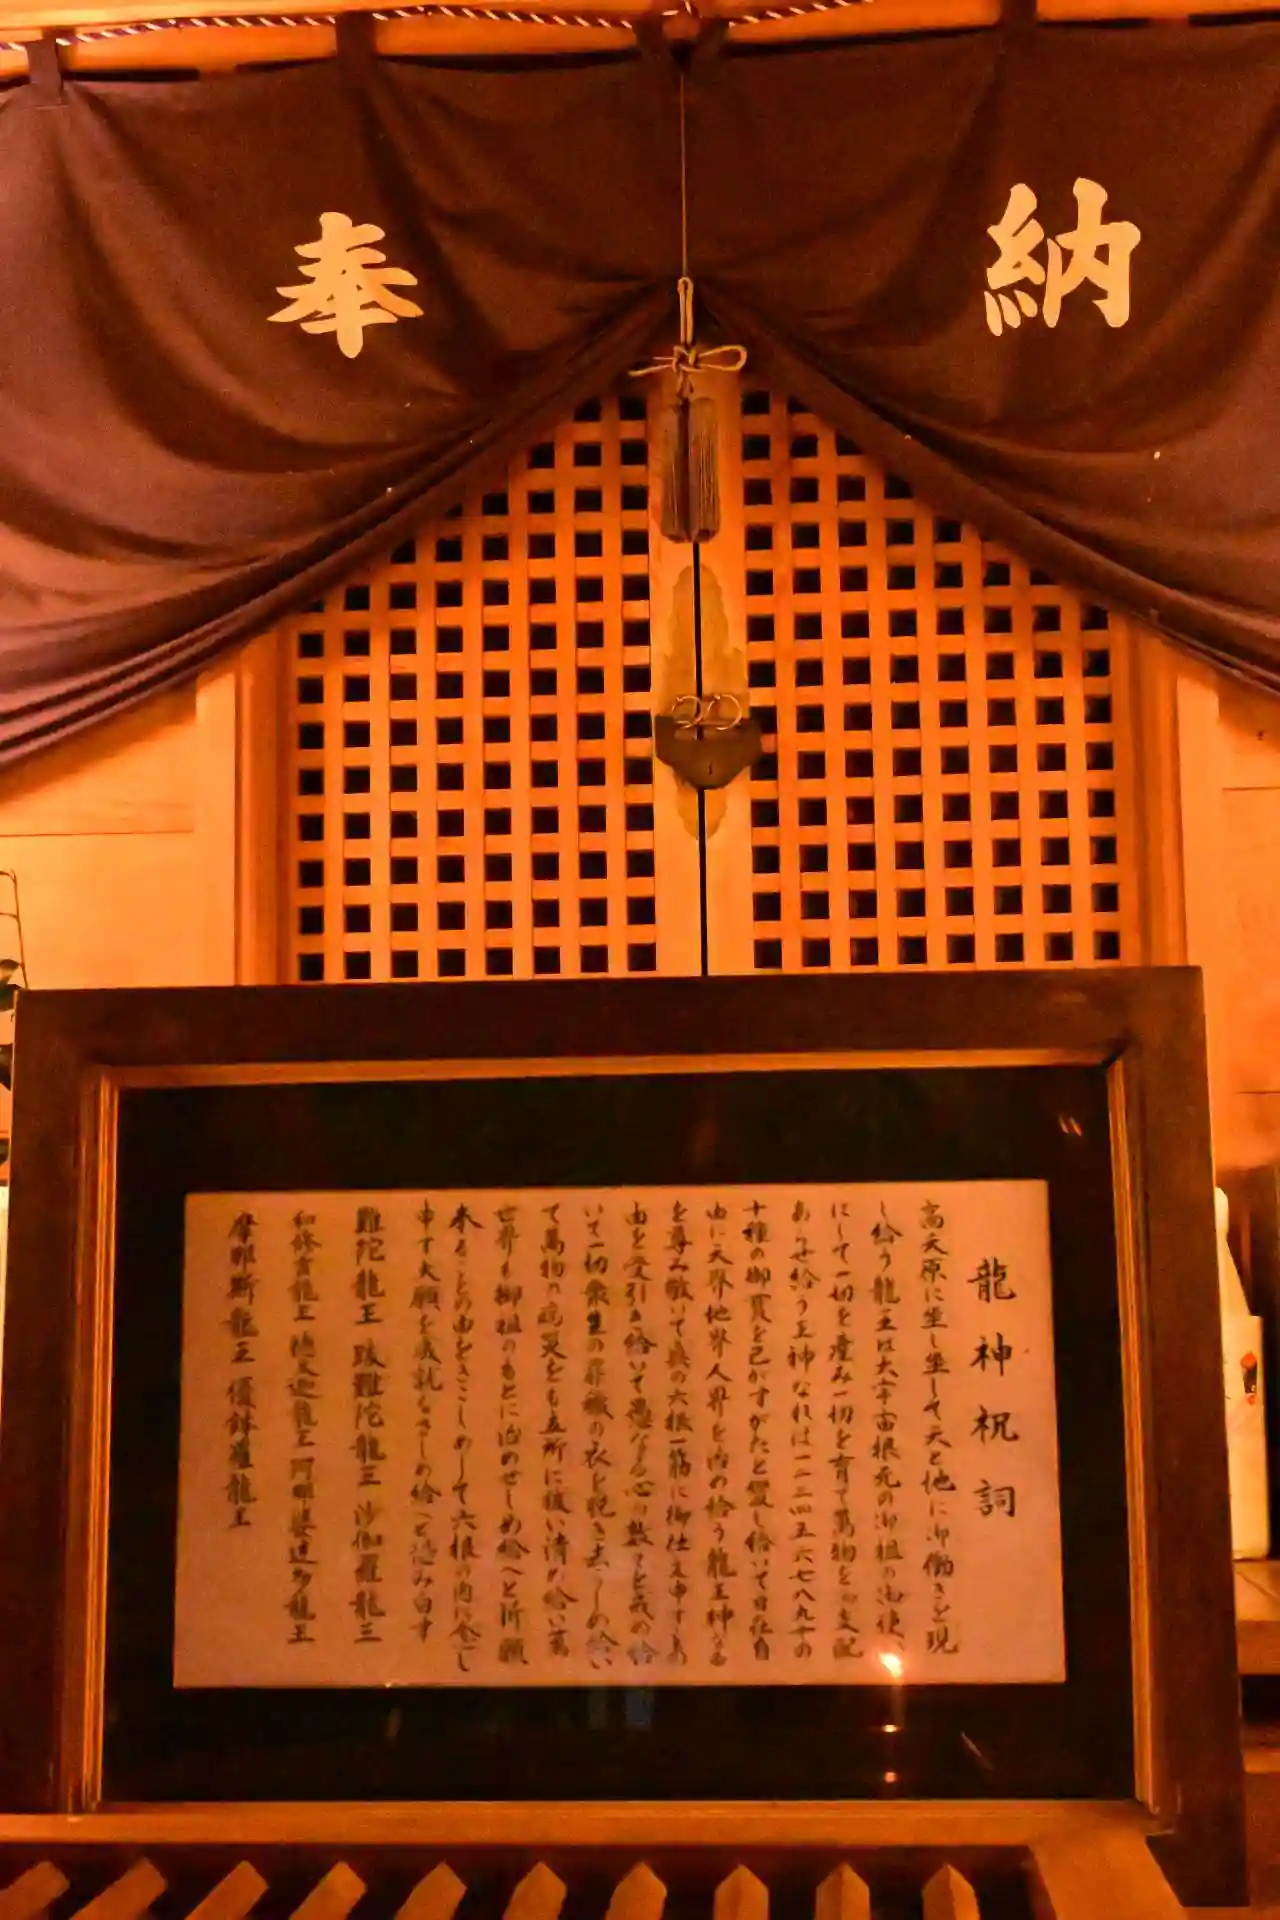 奉納
龍神祝詞
高天原に坐し坐して天と地に御働きを現
し給う龍王は大宇宙根元の御祖の御使い
にして一切を産み一切を育て萬物を御支配
あらせ給う王神なれば一二三四五六七八九十の
十種の御寶を己がすがたと變じ給いて自在自
由に天界地界人界を治め給う龍王神なる
を尊み敬いて眞の六根一筋に御仕え申すあ
由を受引き給いて愚なる心の数々を戒め給
いて一切衆生の罪穢の衣を脱ぎ去らしめ給い
て萬物の病災をも立所に祓い清め給い萬
世界も御祖のもとに治めせしめ給へと祈願
奉ることの由をきこしめして六根の内に念じ
申す大願を成就なさしめ給へと恐み白す
難陀龍王 跋難陀龍王 沙伽羅龍王
和修吉龍王 徳叉迦龍王 阿那婆達多龍王
摩那斯龍王 優鉢羅龍王